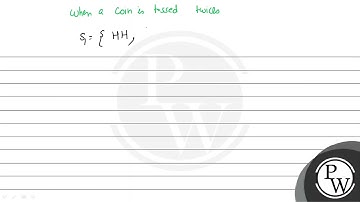 when a coin is tossed twice
S₁ = { HH,
PW
PW